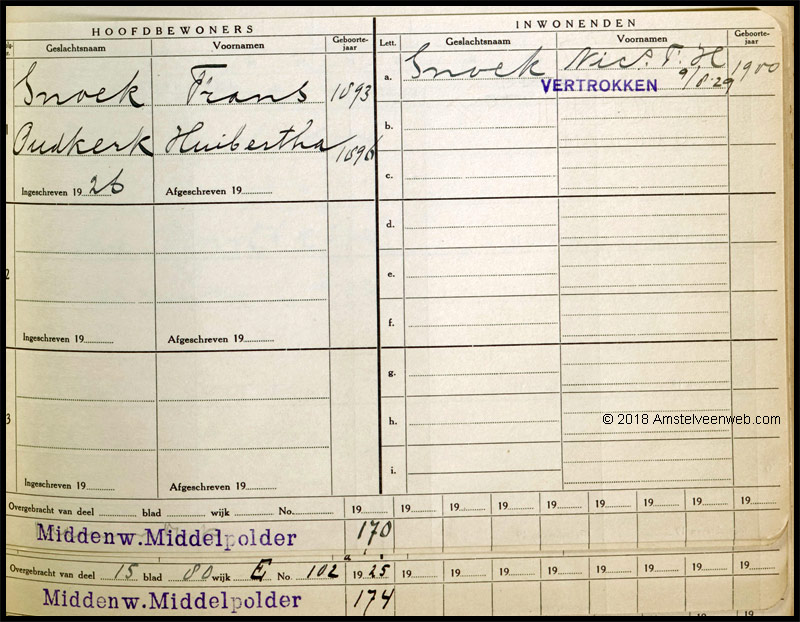 HOOFDBEWONERS
Geslachtsnaam Voornamen Geboorte-jaar
Snoek Frans 1893
Oudkerk Huibertha 1896
Ingeschreven 1926 Afgeschreven 19
2
Ingeschreven 19 Afgeschreven 19
3
Ingeschreven 19 Afgeschreven 19
INWONENDEN
Lett. Geslachtsnaam Voornamen Geboorte-jaar
a. Snoek Nic. T. H 1900
VERTROKKEN 9/8-29
b.
c.
d.
e.
f.
g.
h.
i.
© 2018 Amstelveenweb.com
Overgebracht van deel blad wijk No. 19 19 19 19 19 19 19 19 19
Middenw.Middelpolder 170
Overgebracht van deel 15 blad 80 wijk E No. 102 1925 19 19 19 19 19 19 19 19
Middenw.Middelpolder 174